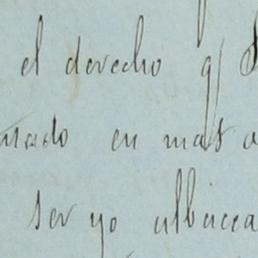 el derecho q
en mas
ser yo albacea